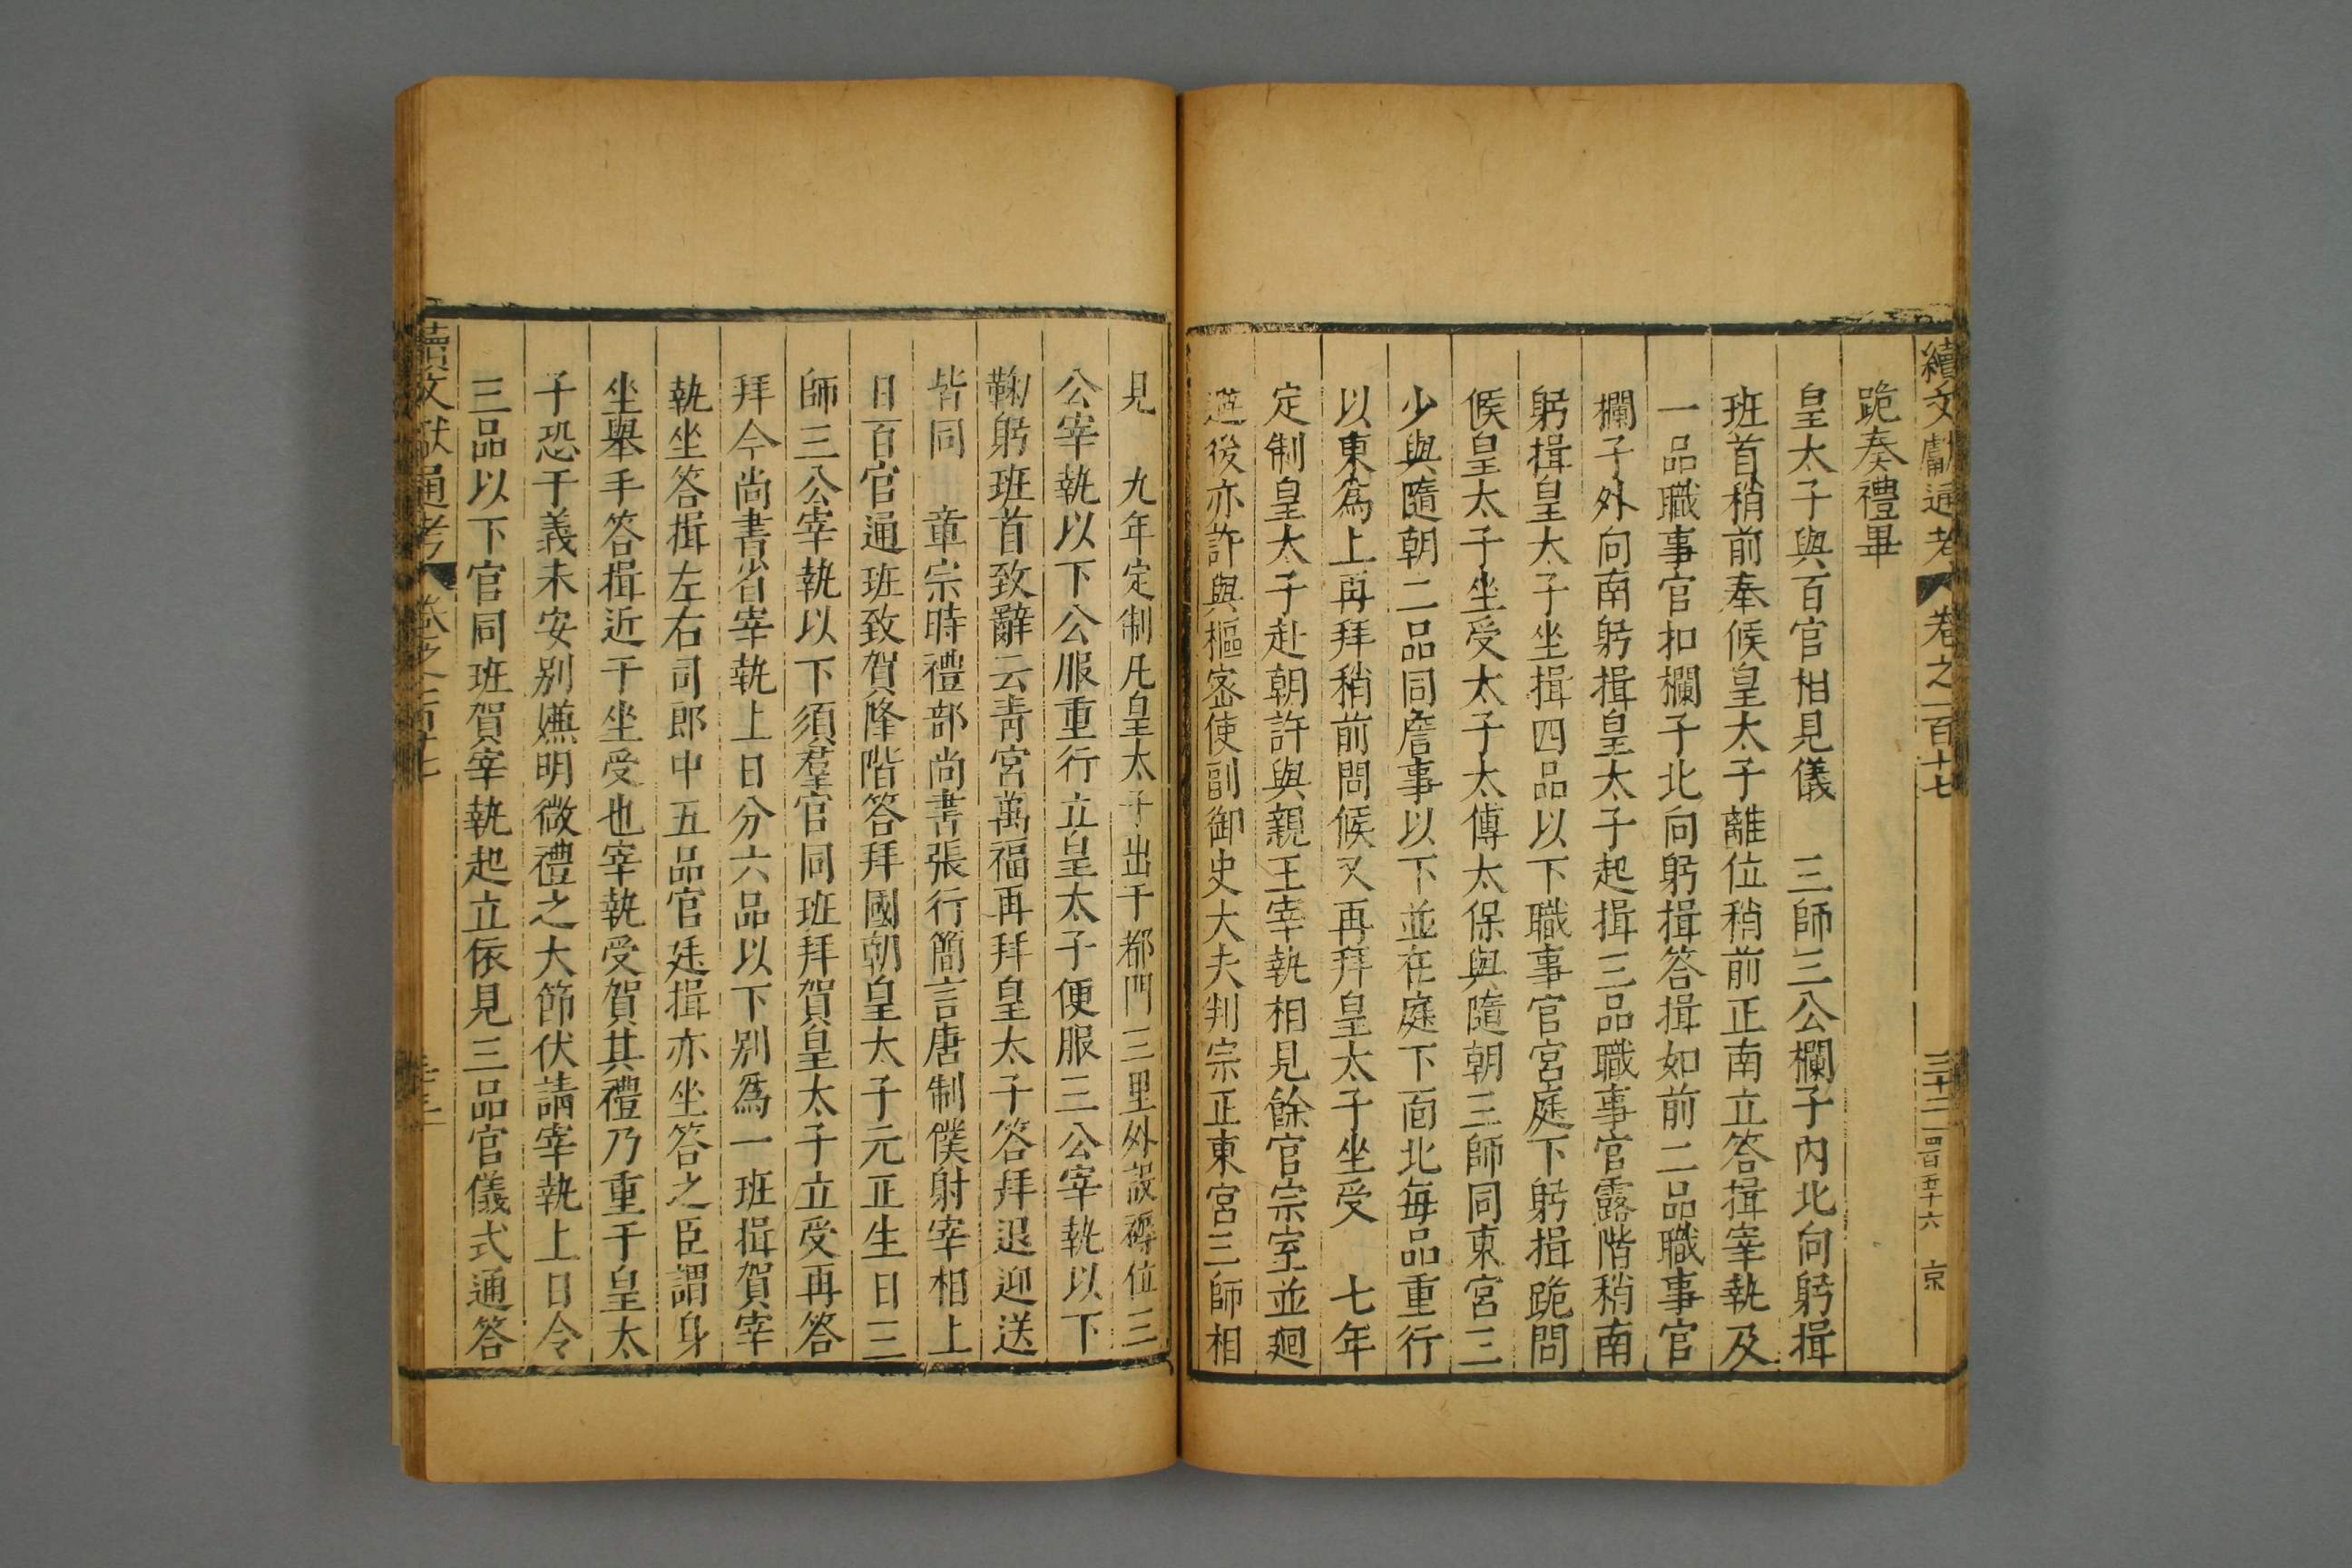 續文獻通考 卷之一百十七 三十二 四百五十六 京
跪奏禮畢
皇太子與百官相見儀 三師三公欄子內北向躬揖
班首稍前奉候皇太子離位稍前正南立答揖宰執及
一品職事官扣欄子北向躬揖答揖如前二品職事官
欄子外向南躬揖皇太子起揖三品職事官露階稍南
躬揖皇太子坐揖四品以下職事官宮庭下躬揖跪問
候皇太子坐受太子太傅太保與隨朝三師同東宮三
少與隨朝二品同詹事以下並在庭下面北每品重行
以東為上再拜稍前問候又再拜皇太子坐受 七年
定制皇太子赴朝許與親王宰執相見餘官宗室並廻
避後亦許與樞密使副御史大夫判宗正東宮三師相
見 九年定制凡皇太子出于都門三里外設褥位三
公宰執以下公服重行立皇太子便服三公宰執以下
鞠躬班首致辭云青宮萬福再拜皇太子答拜退迎送
皆同 章宗時禮部尚書張行簡言唐制僕射宰相上
日百官通班致賀降階答拜國朝皇太子元正生日三
師三公宰執以下須羣官同班拜賀皇太子立受再答
拜今尚書省宰執上日分六品以下別為一班揖賀宰
執坐答揖左右司郎中五品官廷揖亦坐答之臣謂身
坐舉手答揖近于坐受也宰執受賀其禮乃重于皇太
子恐于義未安別嫌明微禮之大節伏請宰執上日令
三品以下官同班賀宰執起立依見三品官儀式通答
續文獻通考 卷之一百十七